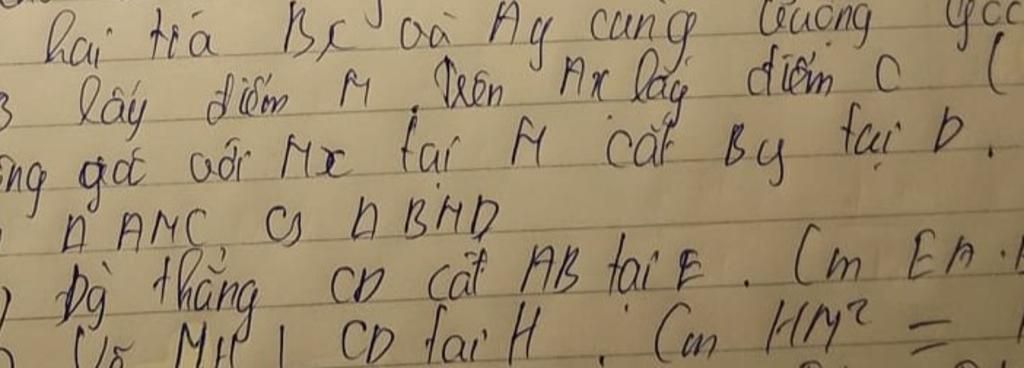 hai tia Bx và Ay cùng vuông góc
B lấy điểm M. Trên Ax lấy điểm C (
ông góc với Mx tại M cắt By tại D.
Δ AMC ᔕ Δ BMD
) Đg thẳng CD cắt AB tại E. Cm EA.
) Vẽ MH ⊥ CD tại H. Cm HM² =